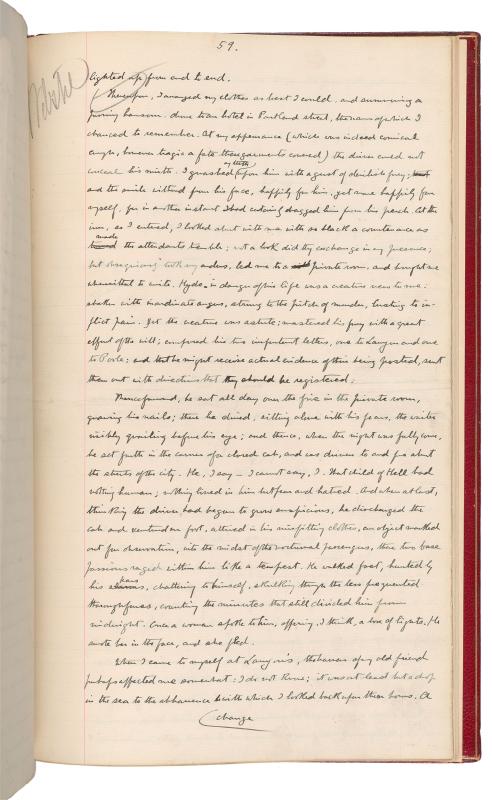 59.
lighted up) from end to end.
Thereupon, I arranged my clothes as best I could, and summoning a
passing hansom, drove to an hotel in Portland street, the name of which I
chanced to remember. At my appearance (which was indeed comical
enough, however tragic a fate these garments covered) the driver could not
my teeth
conceal his mirth. I gnashed upon him with a gust of devilish fury;
and the smile withered from his face, happily for him, yet more happily for
myself, for in another instant I had certainly dragged him from his perch. At the
inn, as I entered, I looked about with me with so black a countenance as
made
the attendants tremble; not a look did they exchange in my presence;
but obsequiously took my orders, led me to a private room, and brought me
wherewithal to write. Hyde in danger of his life was a creature new to me:
shaken with inordinate anger, strung to the pitch of murder, lusting to in-
flict pain. Yet the creature was astute; mastered his fury with a great
effort of the will; composed his two important letters, one to Lanyon and one
to Poole; and that he might receive actual evidence of their being posted, sent
them out with directions that they should be registered.
Thenceforward, he sat all day over the fire in the private room,
gnawing his nails; there he dined, sitting alone with his fears, the waiter
visibly quailing before his eye; and thence, when the night was fully come,
he set forth in the corner of a closed cab, and was driven to and fro about
the streets of the city. He, I say - I cannot say, I. That child of Hell had
nothing human; nothing lived in him but fear and hatred. And when at last,
thinking the driver had begun to grow suspicious, he discharged the
cab and ventured on foot, attired in his misfitting clothes, an object marked
out for observation, into the midst of the nocturnal passengers, these two base
passions raged within him like a tempest. He walked fast, hunted by
fears
his, chattering to himself, skulking through the less frequented
thoroughfares, counting the minutes that still divided him from
midnight. Once a woman spoke to him, offering, I think, a box of lights. He
smote her in the face, and she fled.
When I came to myself at Lanyon's, the horror of my old friend
perhaps affected me somewhat: I do not know; it was at least but a drop
in the sea to the abhorrence with which I looked back upon these hours. A
change